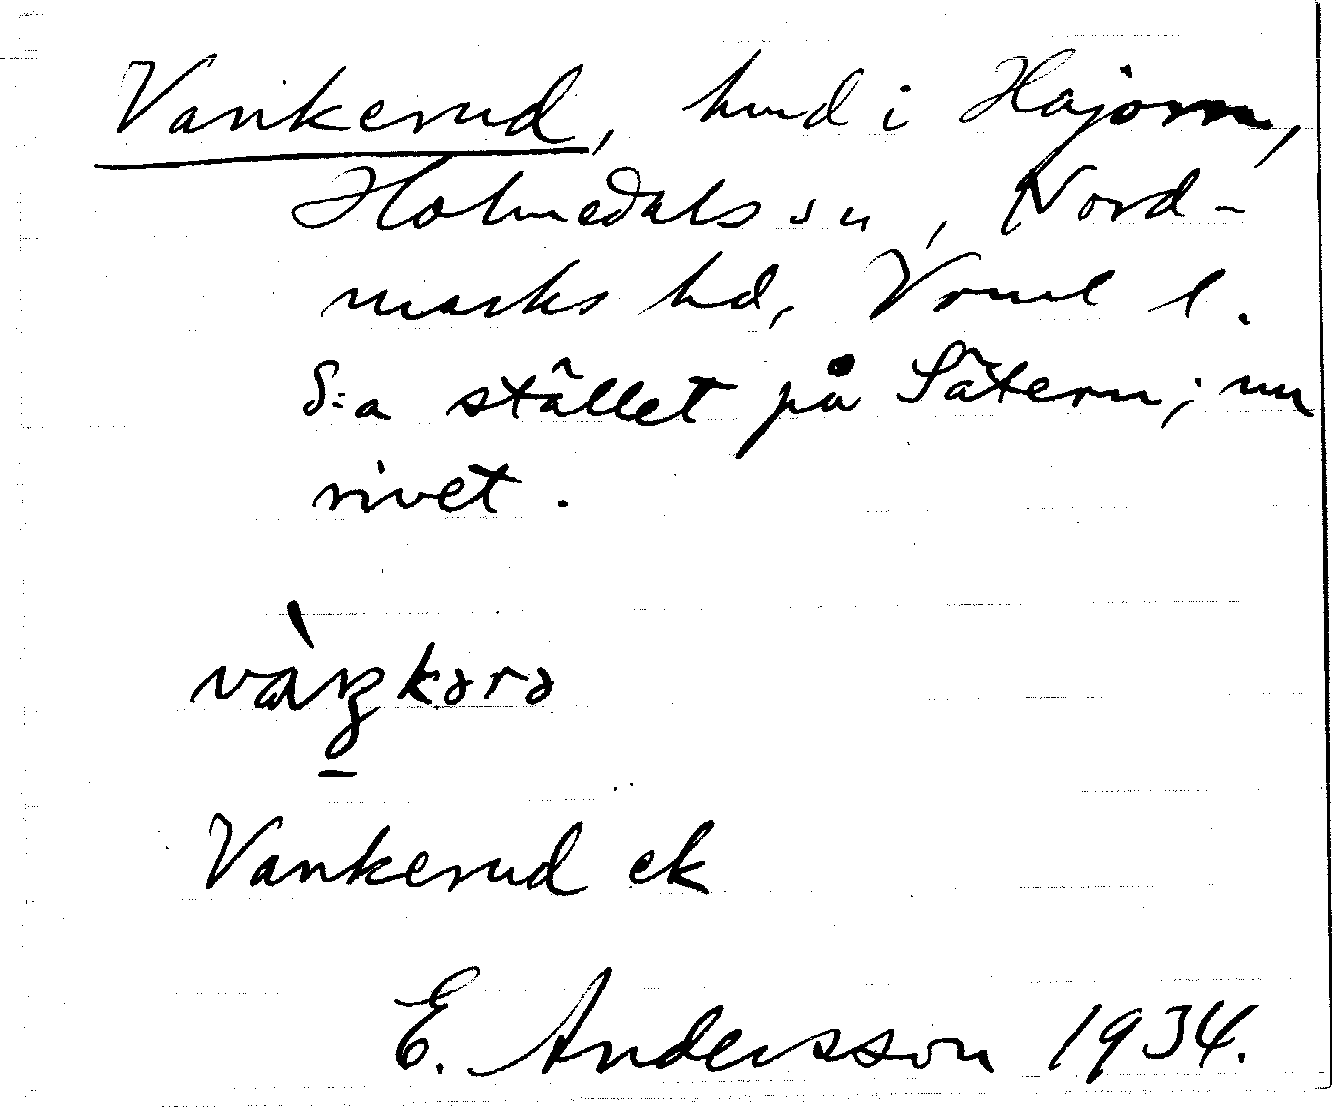 Vankerud, hmd i Häjorm,
Holmedals sn, Nord-
marks hd, Vrml l.
S:a stället på Sätern; nu
rivet.
vàŋkərə
Vankerud ek
E. Andersson 1934.